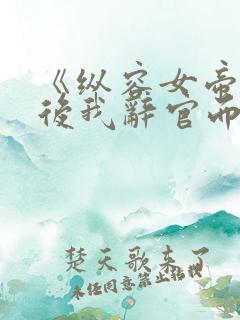 《纵容女帝
後我辞官而
楚天歌来了
未经同意禁止转载